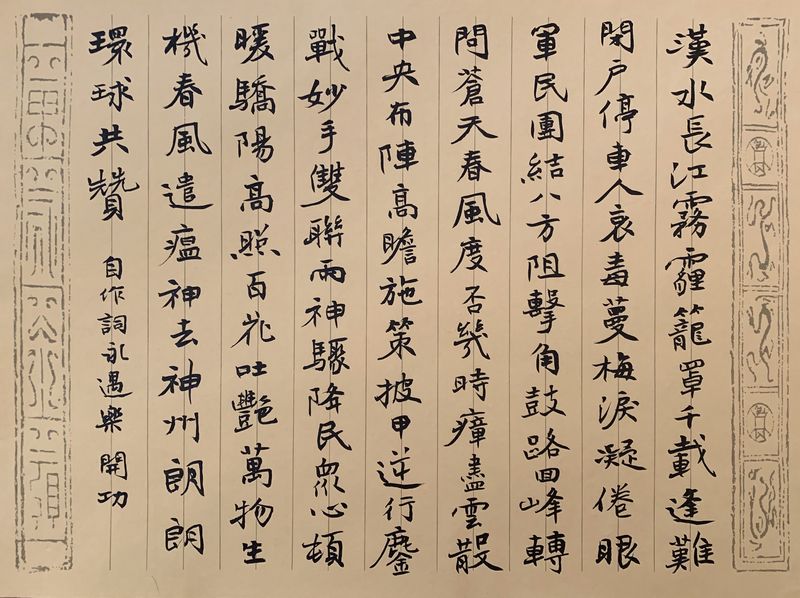 漢水長江霧霾籠罩千載逢難
閉戶停車人哀毒蔓梅淚凝倦眼
軍民團結八方阻擊角鼓路回峰轉
問蒼天春風度否幾時瘴盡雲散
中央布陣高瞻施策披甲逆行鏖
戰妙手雙聯兩神驟降民眾心頓
暖驕陽高照百花吐艷萬物生
機春風遣瘟神去神州朗朗
環球共贊
自作詞永遇樂 開功